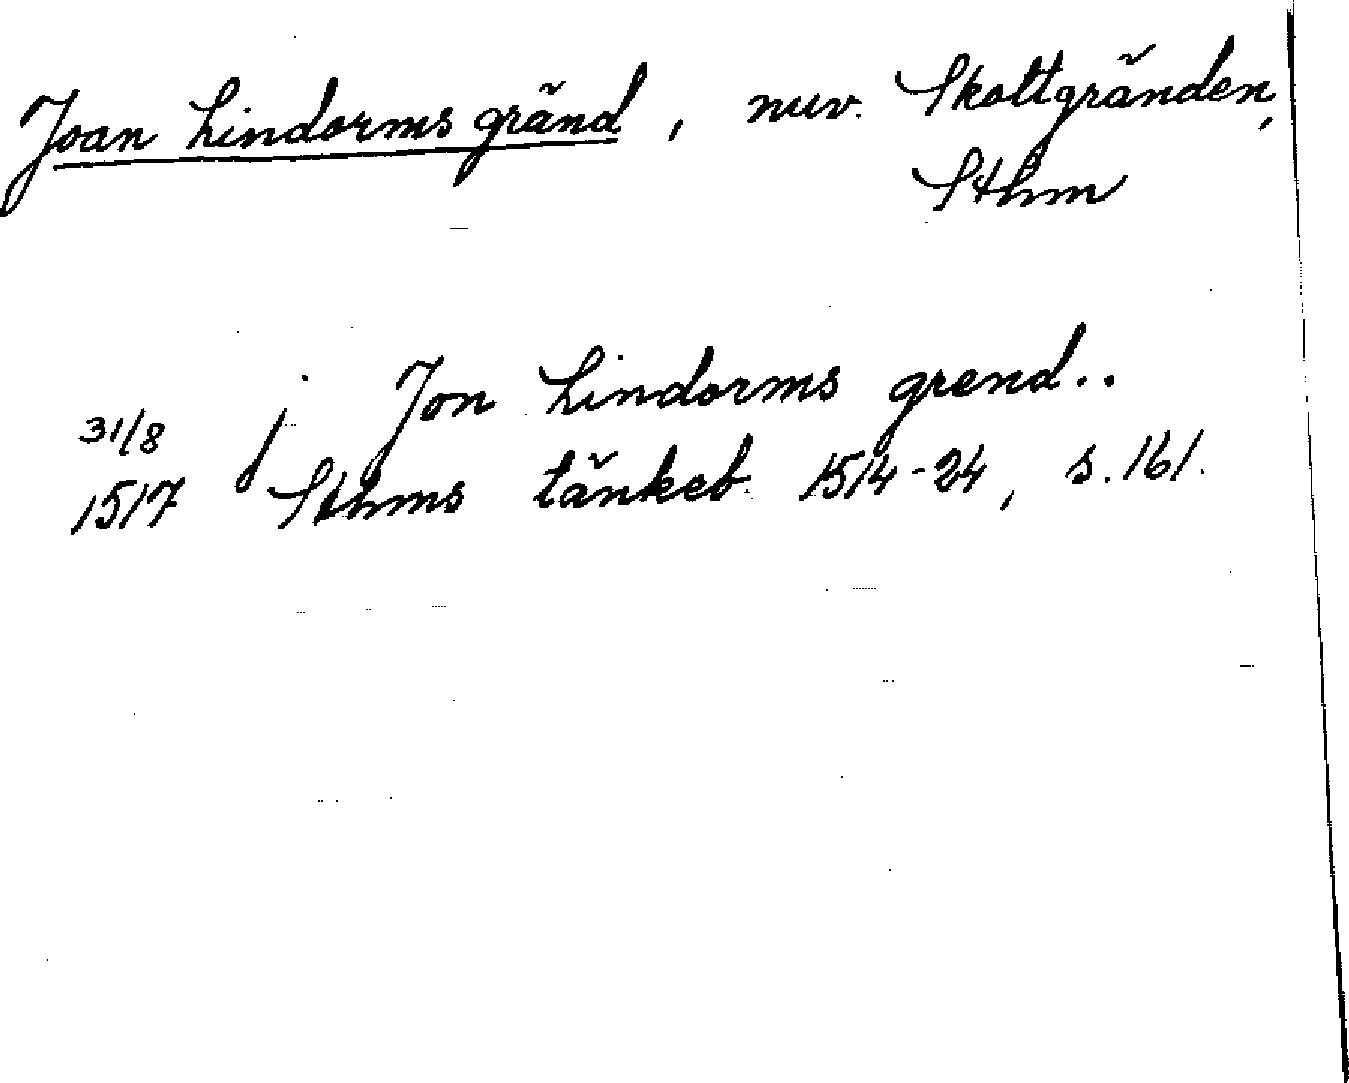 Joan Lindorms gränd, nuv. Skottgränden,
Sthm
31/8 i Jon Lindorms grend..
1517 Sthms tänkeb. 1514-24, s. 161.